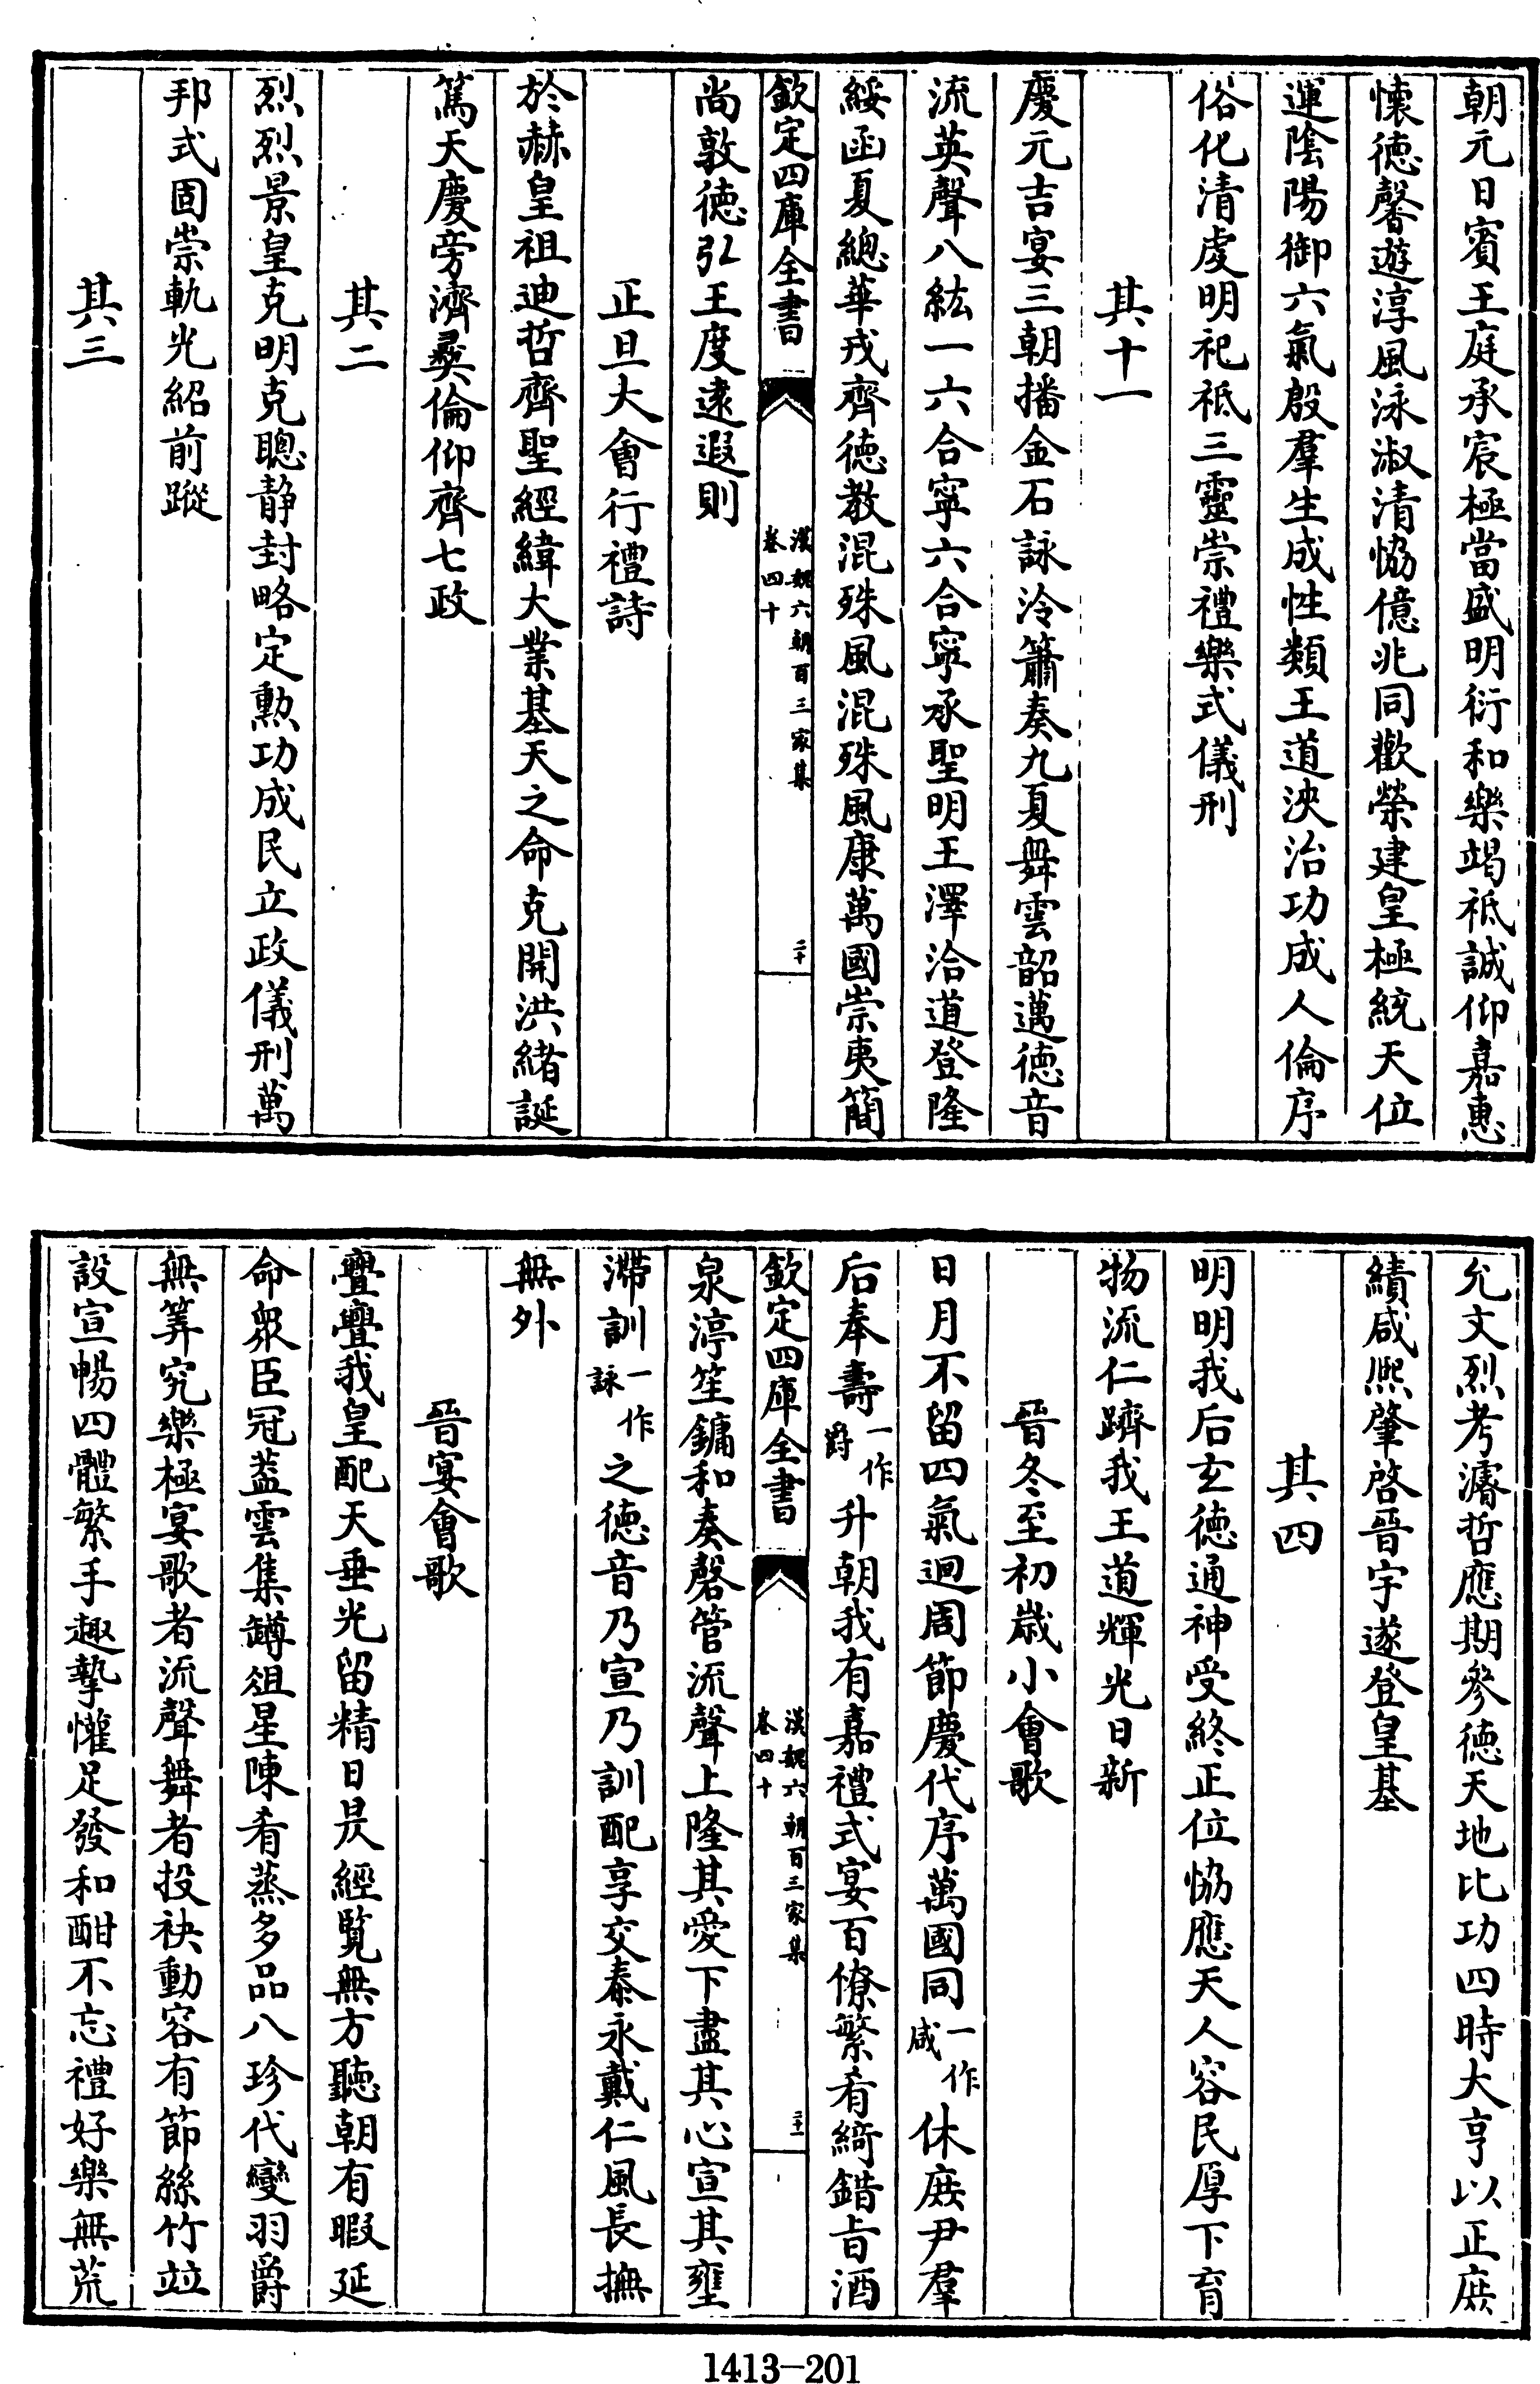 朝元日賓王庭承宸極當盛明衍和樂竭祗誠仰嘉惠
懐徳馨遊淳風泳淑清恊億兆同歡榮建皇極統天位
運陰陽御六氣殷羣生成性類王道浹治功成人倫序
俗化清虔明祀祗三靈崇禮樂式儀刑
其十一
慶元吉宴三朝播金石詠泠簫奏九夏舞雲韶邁徳音
流英聲八紘一六合寧六合寧承聖明王澤洽道登隆
綏函夏總華戎齊徳教混殊風混殊風康萬國崇夷簡
欽定四庫全書
漢魏六朝百三家集
卷四十
二十
尚敦徳弘王度逺遐則
正旦大會行禮詩
於赫皇祖迪哲齊聖經緯大業基天之命克開洪緒誕
篤天慶旁濟彛倫仰齊七政
其二
烈烈景皇克明克聰静封略定勲功成民立政儀刑萬
邦式固崇軌光紹前蹤
其三
允文烈考濬哲應期參徳天地比功四時大亨以正庶
績咸熈肇啓晉宇遂登皇基
其四
明明我后玄徳通神受終正位恊應天人容民厚下育
物流仁躋我王道輝光日新
晉冬至初歳小會歌
日月不留四氣迴周節慶代序萬國同一作咸休庶尹羣
后奉壽一作爵升朝我有嘉禮式宴百僚繁肴綺錯旨酒
欽定四庫全書
漢魏六朝百三家集
卷四十
二十一
泉渟笙鏞和奏磬管流聲上隆其愛下盡其心宣其壅
滯訓一作詠之徳音乃宣乃訓配享交泰永戴仁風長撫
無外
晉宴會歌
亹亹我皇配天垂光留精日昃經覽無方聽朝有暇延
命衆臣冠葢雲集罇俎星陳肴蒸多品八珍代變羽爵
無筭究樂極宴歌者流聲舞者投袂動容有節絲竹竝
設宣暢四體繁手趣摯懽足發和酣不忘禮好樂無荒
1413-201